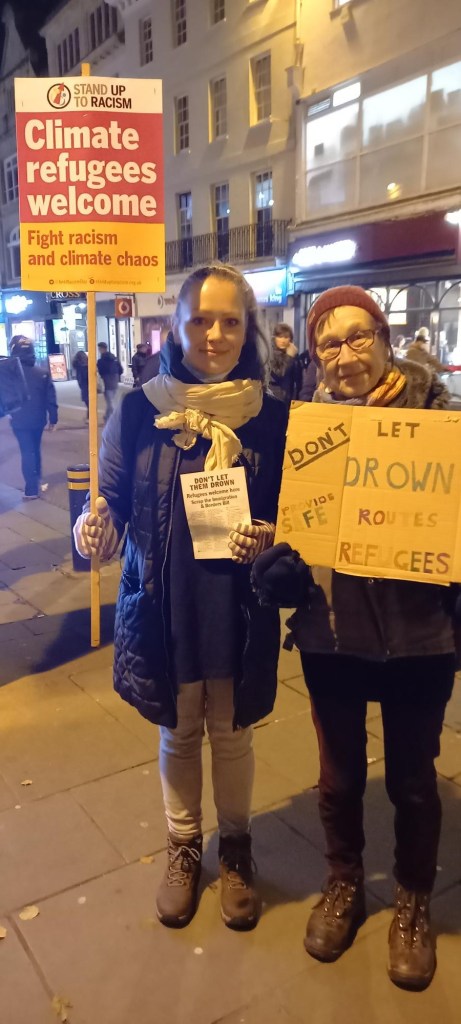 STAND UP
TO RACISM
Climate
refugees
welcome
Fight racism
and climate chaos
DON'T LET
THEM DROWN
Refugees welcome here
Scrap the Immigration
& Borders Bill
DON'T
LET
DROWN
PROVIDE
SAFE
ROUTES
REFUGEES